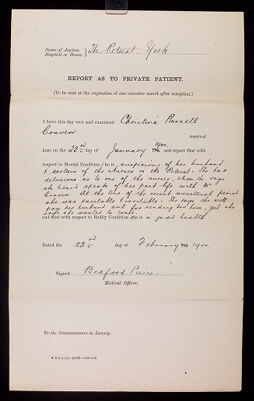 Name of Asylum,
Hospital or House, } The Retreat. York
REPORT AS TO PRIVATE PATIENT.
(To be sent at the expiration of one calendar month after reception.)
I have this day seen and examined Christina Russell
Craven received
here on the 23rd day of January 1900, and report that with
respect to Mental Condition she is suspicious of her husband
& certain of the nurses in the Retreat. She has
delusions as to one of the nurses, whom she says
she heard speak of her past life with Mr
Craven. At the time of the recent menstrual period
she was excitable & irritable. She says she will
pay her husband out for sending her here, yet she
says she wanted to come.
and that with respect to Bodily Condition she is in good health
Dated the 23rd day of February 1900.
Signed Bedford Pierce
Medical Officer.
To the Commissioners in Lunacy.